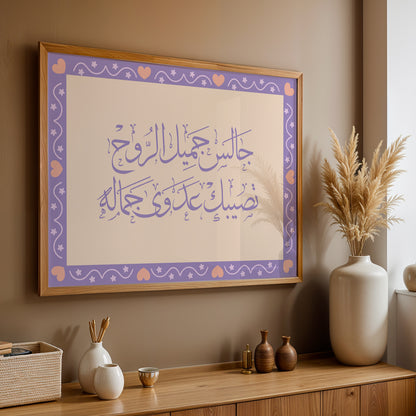 جَالِس جَمِيل الرُّوح
تصيبك عَدوى جَمَاله